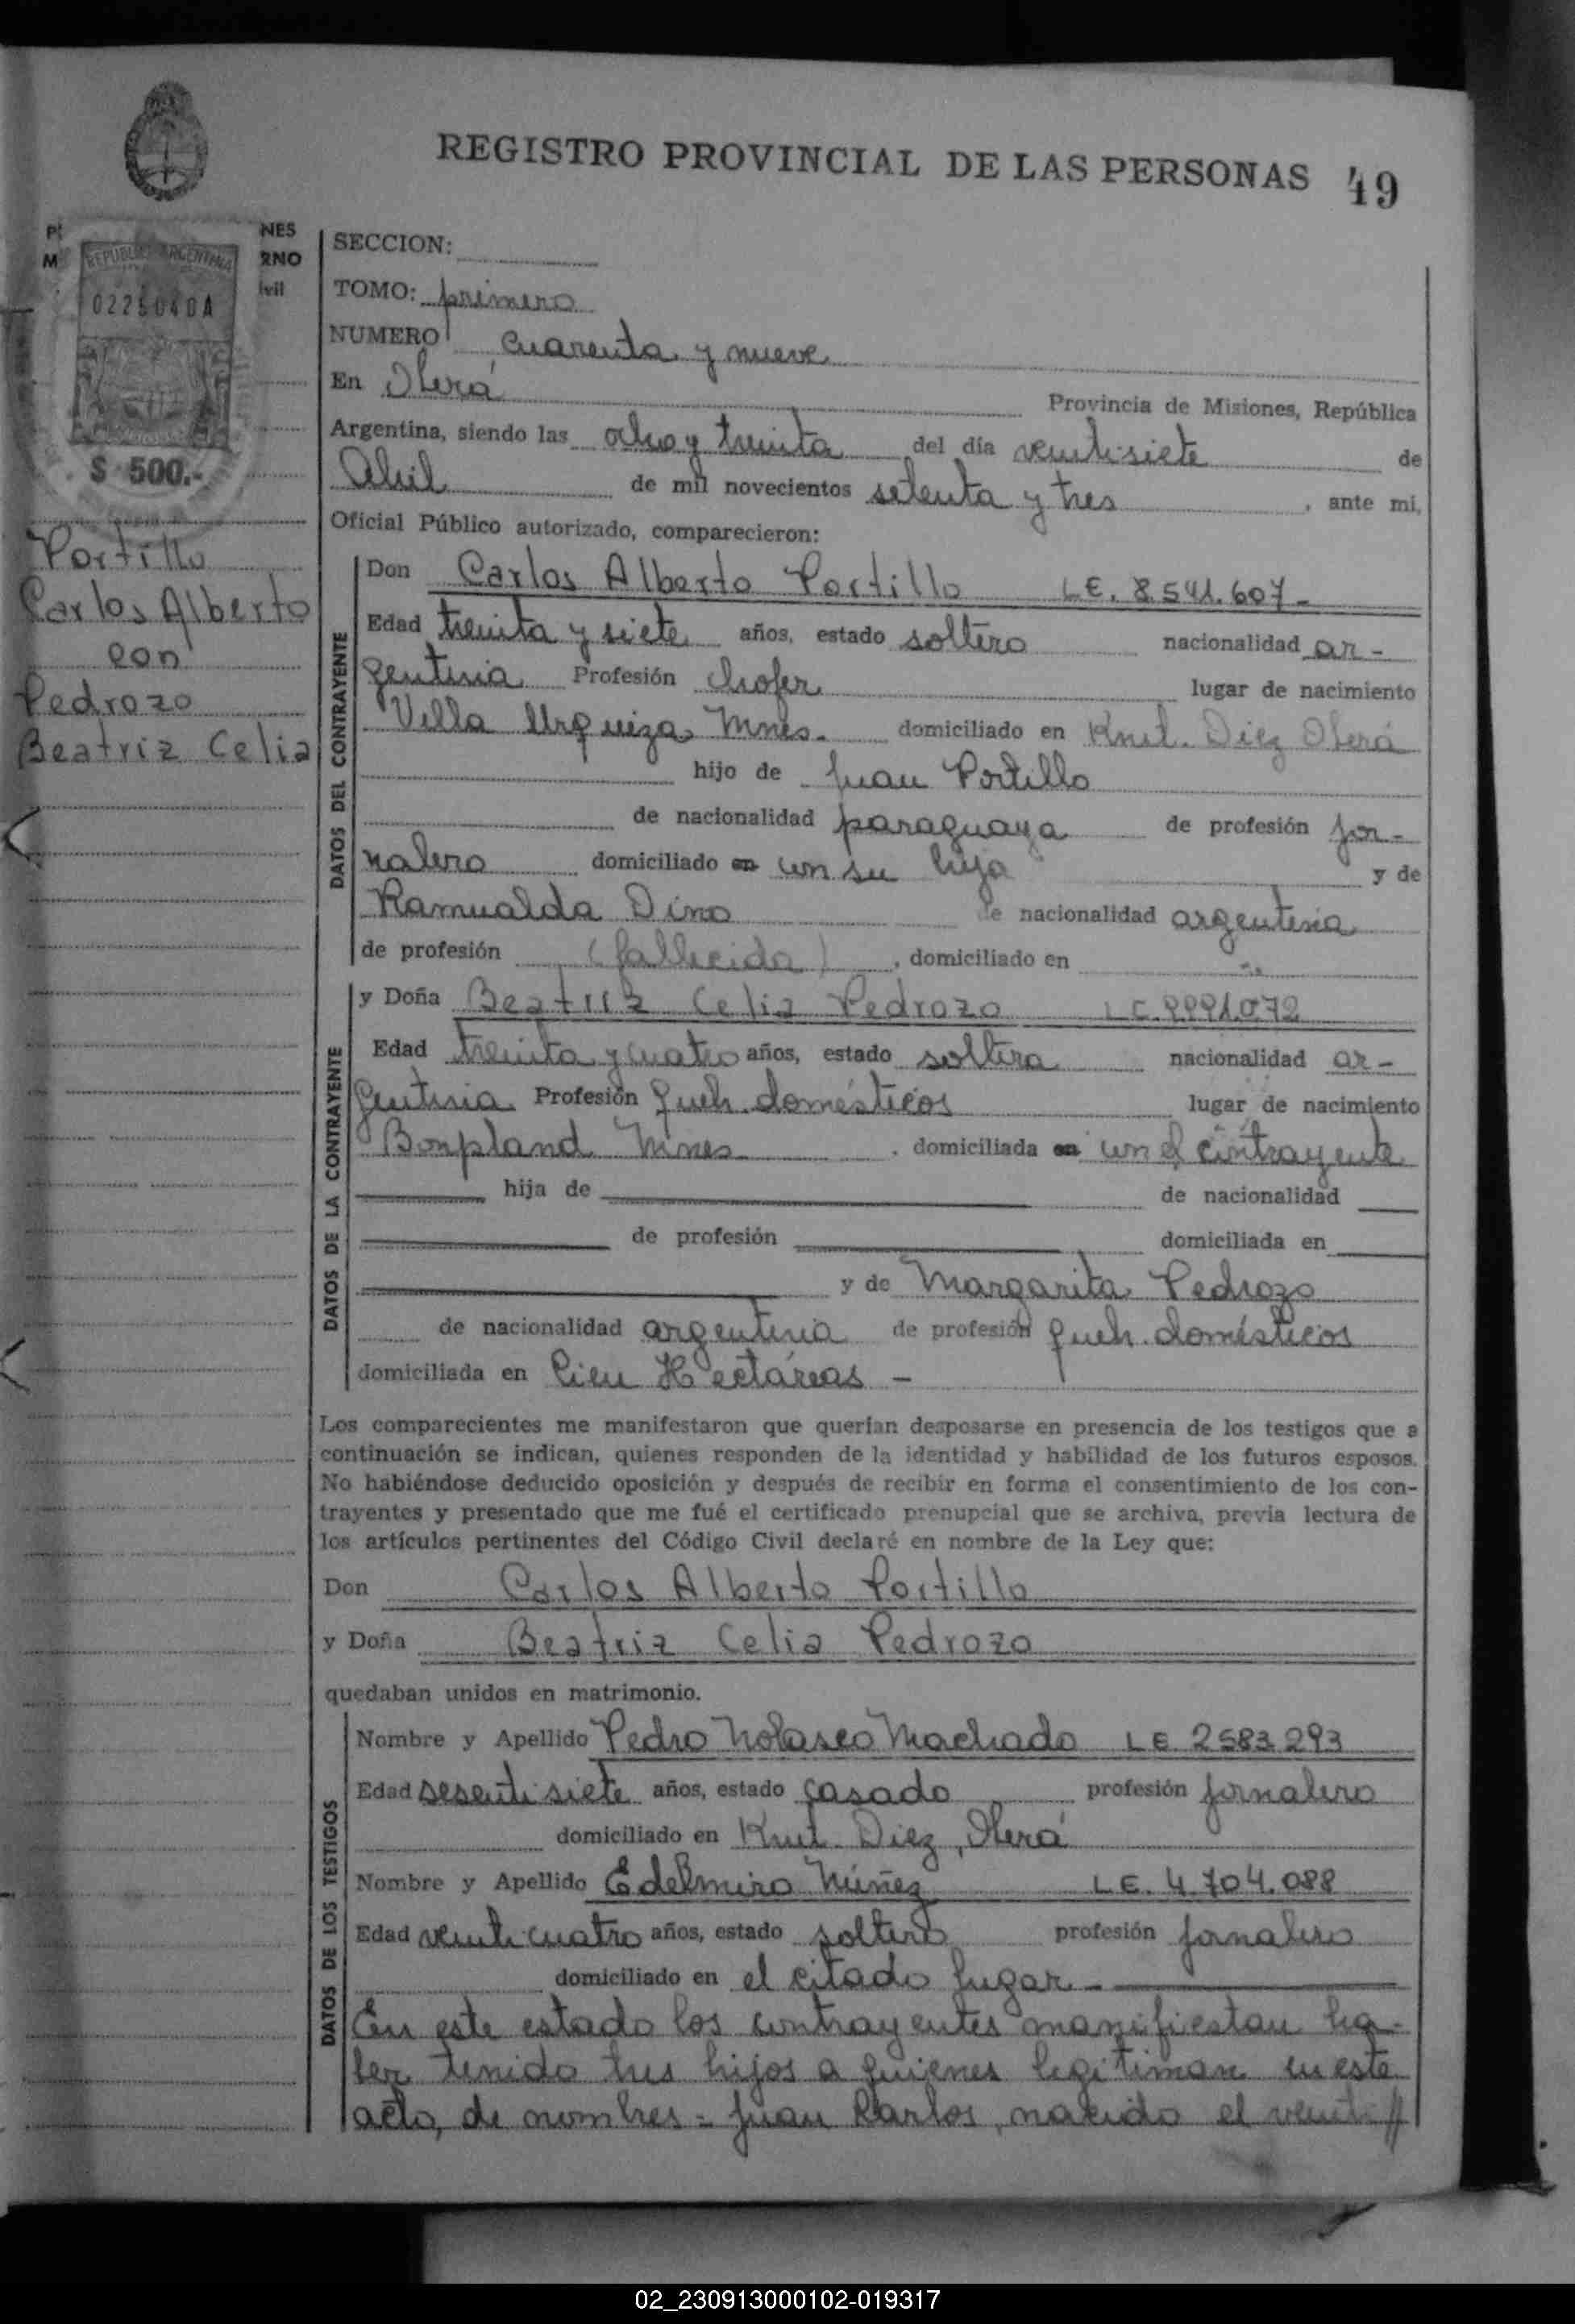 REGISTRO PROVINCIAL DE LAS PERSONAS 49
NES
RNO
ivil
REPUBLICA ARGENTINA
0225040A
$ 500.-
Portillo
Carlos Alberto
con
Pedrozo
Beatriz Celia
SECCION:
TOMO: primero
NUMERO cuarenta y nueve
En Oberá Provincia de Misiones, República
Argentina, siendo las ocho y treinta del día veintisiete de
Abril de mil novecientos setenta y tres, ante mi,
Oficial Público autorizado, comparecieron:
DATOS DEL CONTRAYENTE
Don Carlos Alberto Portillo LE. 8.541.607-
Edad treinta y siete años, estado soltero nacionalidad ar-
gentina Profesión chofer lugar de nacimiento
Villa Urquiza, Mnes. domiciliado en Kmt. Diez Oberá
hijo de Juan Portillo
de nacionalidad paraguaya de profesión jor-
nalero domiciliado en con su hijo y de
Ramualda Dino de nacionalidad argentina
de profesión (fallecida), domiciliado en
DATOS DE LA CONTRAYENTE
y Doña Beatriz Celia Pedrozo LC. 9991.072
Edad treinta y cuatro años, estado soltera nacionalidad ar-
gentina Profesión queh. domésticos lugar de nacimiento
Bonpland Mnes. domiciliada en con el contrayente
hija de de nacionalidad
de profesión domiciliada en
y de Margarita Pedrozo
de nacionalidad argentina de profesión queh. domésticos
domiciliada en Cien Hectáreas -
Los comparecientes me manifestaron que querían desposarse en presencia de los testigos que a
continuación se indican, quienes responden de la identidad y habilidad de los futuros esposos.
No habiéndose deducido oposición y después de recibir en forma el consentimiento de los con-
trayentes y presentado que me fué el certificado prenupcial que se archiva, previa lectura de
los artículos pertinentes del Código Civil declaré en nombre de la Ley que:
Don Carlos Alberto Portillo
y Doña Beatriz Celia Pedrozo
quedaban unidos en matrimonio.
DATOS DE LOS TESTIGOS
Nombre y Apellido Pedro Nolasco Machado LE 2583.293
Edad sesentisiete años, estado casado profesión jornalero
domiciliado en Kmt. Diez, Oberá
Nombre y Apellido Edelmiro Núñez LE. 4.704.088
Edad veinticuatro años, estado soltero profesión jornalero
domiciliado en el citado lugar.-
En este estado los contrayentes manifiestan ha-
ber tenido tres hijos a quienes legitiman en este
acto, de nombres = Juan Carlos, nacido el veinti//
02_230913000102-019317